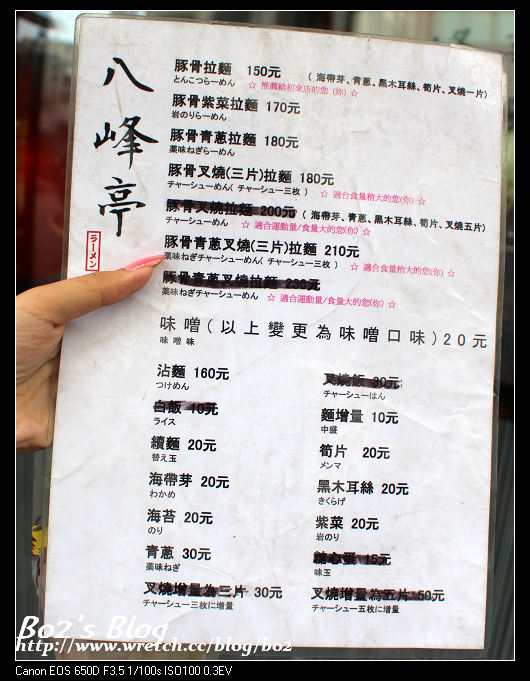 八峰亭
ラーメン
豚骨拉麵 150元 ( 海帶芽、青蔥、黑木耳絲、筍片、叉燒一片)
とんこつらーめん ☆ 推薦給初來店的您 (妳) ☆
豚骨紫菜拉麵 170元
岩のりらーめん
豚骨青蔥拉麵 180元
薬味ねぎらーめん
豚骨叉燒(三片)拉麵 180元
チャーシューめん( チャーシュー三枚 ) ☆ 適合食量稍大的您(妳) ☆
豚骨叉燒拉麵 200元 ( 海帶芽、青蔥、黑木耳絲、筍片、叉燒五片)
チャーシューめん ☆ 適合運動量/食量大的您(妳) ☆
豚骨青蔥叉燒(三片)拉麵 210元
薬味ねぎチャーシューめん( チャーシュー三枚 ) ☆ 適合食量稍大的您(妳) ☆
豚骨青蔥叉燒拉麵 230元
薬味ねぎチャーシューめん ☆ 適合運動量/食量大的您(妳) ☆
味噌(以上變更為味噌口味)20元
味噌味
沾麵 160元
つけめん
白飯 10元
ライス
續麵 20元
替え玉
海帶芽 20元
わかめ
海苔 20元
のり
青蔥 30元
薬味ねぎ
叉燒增量為三片 30元
チャーシュー三枚に増量
叉燒飯 90元
チャーシューはん
麵增量 10元
中盛
筍片 20元
メンマ
黑木耳絲 20元
きくらげ
紫菜 20元
岩のり
糖心蛋 15元
味玉
叉燒增量為五片 50元
チャーシュー五枚に増量
Bo2's Blog
http://www.wretch.cc/blog/bo2
Canon EOS 650D F3.5 1/100s ISO100 0.3EV